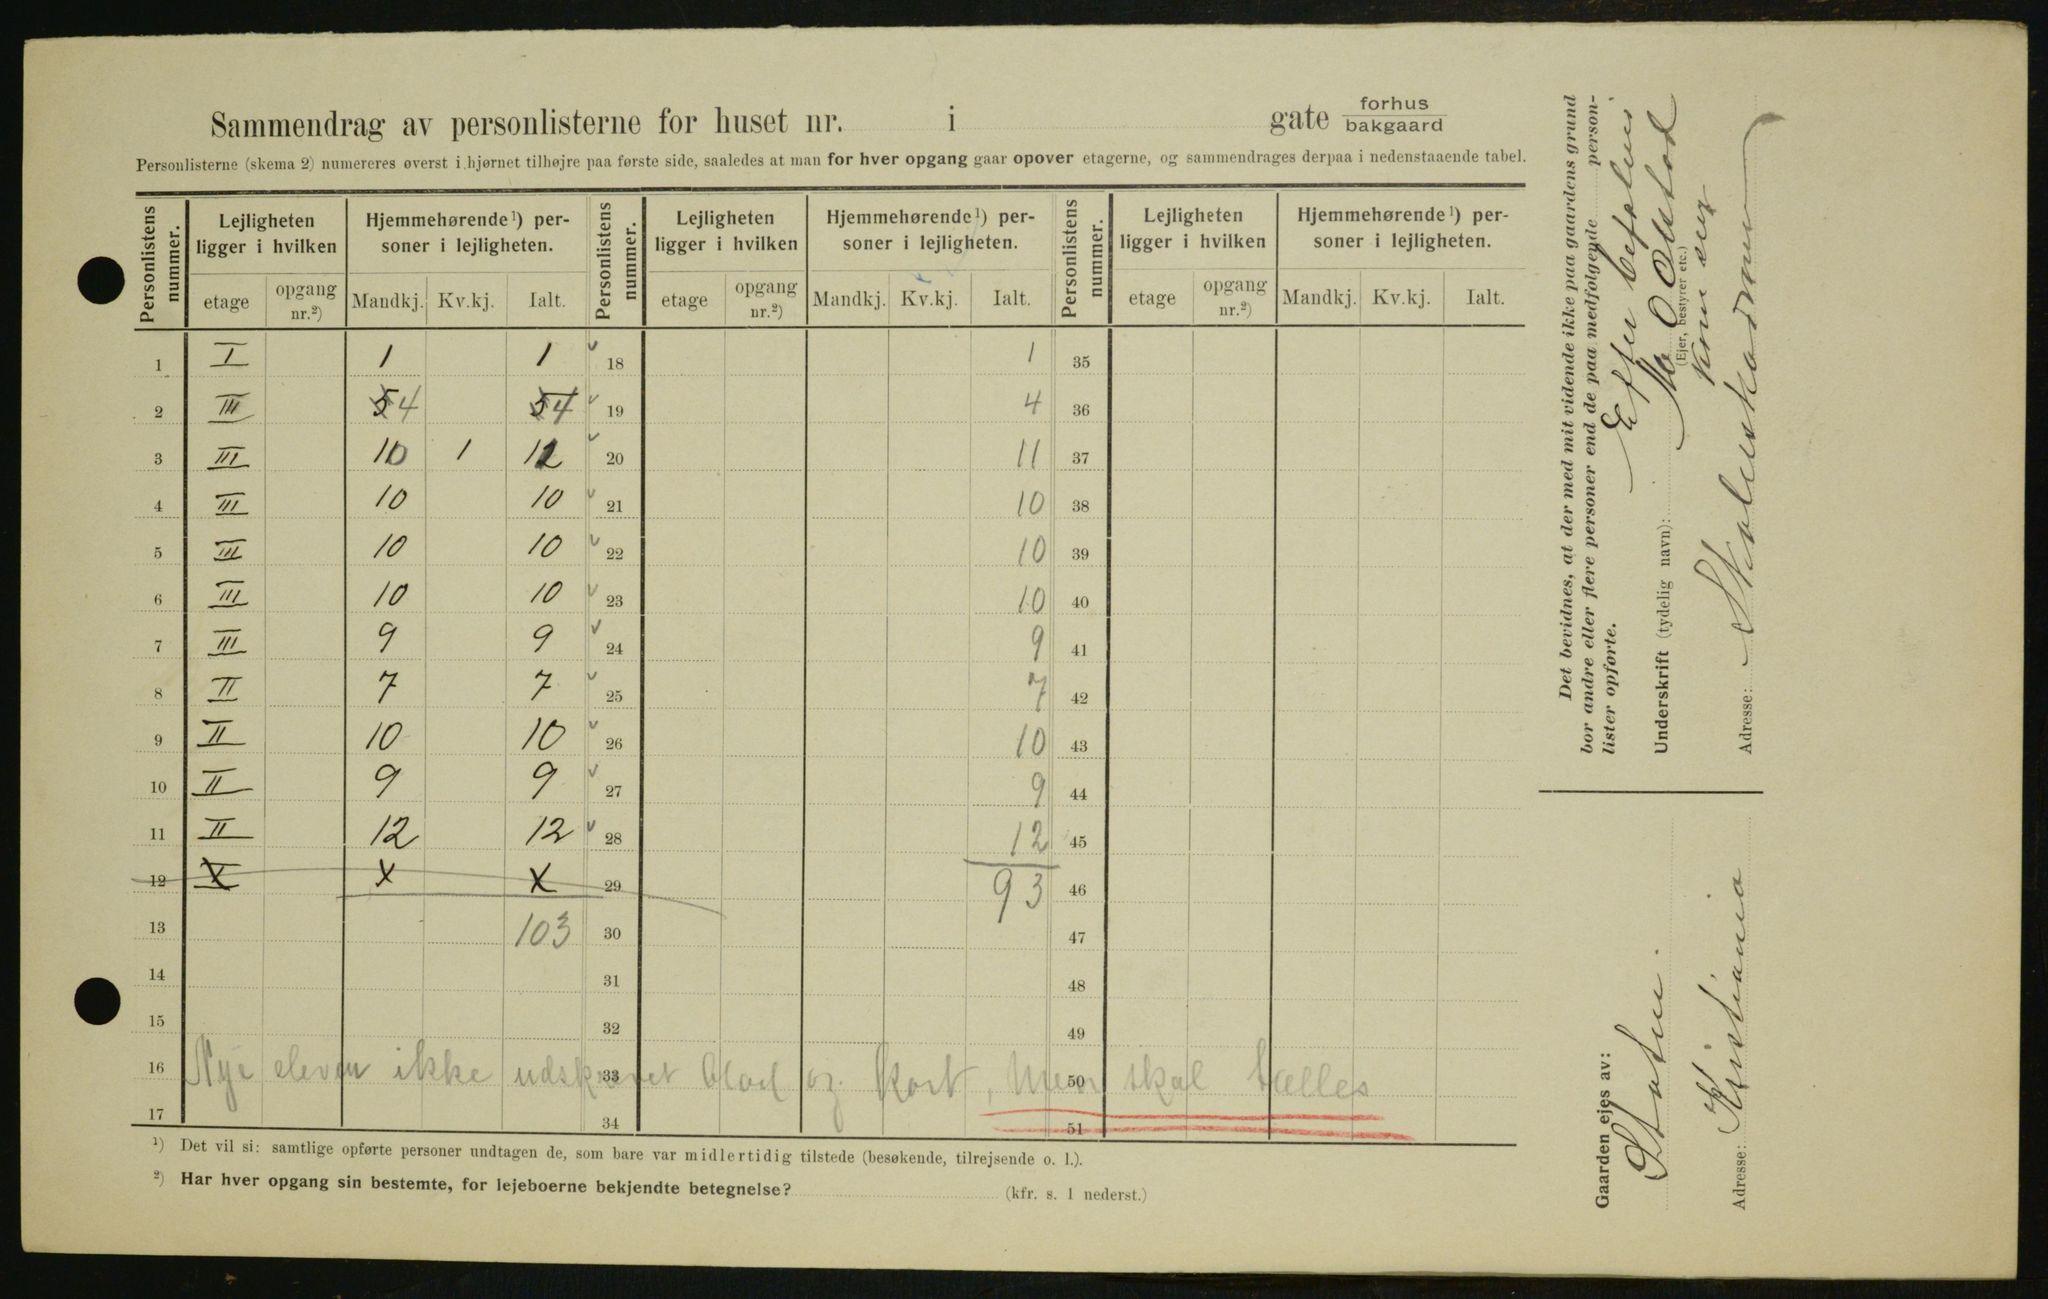 Sammendrag av personlisterne for huset nr. i gate forhus bakgaard
Personlisterne (skema 2) numereres øverst i hjørnet tilhøjre paa første side, saaledes at man for hver opgang gaar opover etagerne, og sammendrages derpaa i nedenstaaende tabel.
Personlistens nummer. Lejligheten ligger i hvilken Hjemmehørende¹) personer i lejligheten. Personlistens nummer. Lejligheten ligger i hvilken Hjemmehørende¹) personer i lejligheten. Personlistens nummer. Lejligheten ligger i hvilken Hjemmehørende¹) personer i lejligheten.
etage opgang nr.²) Mandkj. Kv.kj. Ialt. etage opgang nr.²) Mandkj. Kv.kj. Ialt. etage opgang nr.²) Mandkj. Kv.kj. Ialt.
1 I 1 1 18 1 35
2 III 5 4 5 4 19 4 36
3 III 10 1 20 11 37
4 III 10 10 21 10 38
5 III 10 10 22 10 39
6 III 10 10 23 10 40
7 III 9 9 24 9 41
8 II 7 7 25 7 42
9 II 10 10 26 10 43
10 II 9 9 27 9 44
11 II 12 12 28 12 45
12 x x 29 93 46
13 103 30 47
14 31 48
15 32 49
16 33 50
Nye elever ikke udskrevet blad og kort, men skal tælles
17 34 51
¹) Det vil si: samtlige opførte personer undtagen de, som bare var midlertidig tilstede (besøkende, tilrejsende o. l.).
²) Har hver opgang sin bestemte, for lejeboerne bekjendte betegnelse? (kfr. s. 1 nederst.)
Det bevidnes, at der med mit vidende ikke paa gaardens grund
bor andre eller flere personer end de paa medfølgende personlister opførte.
Efter befaling
Underskrift (tydelig navn):
(Ejer, bestyrer etc.)
Adresse:
Gaarden ejes av:
Staten.
Adresse: Kristiania